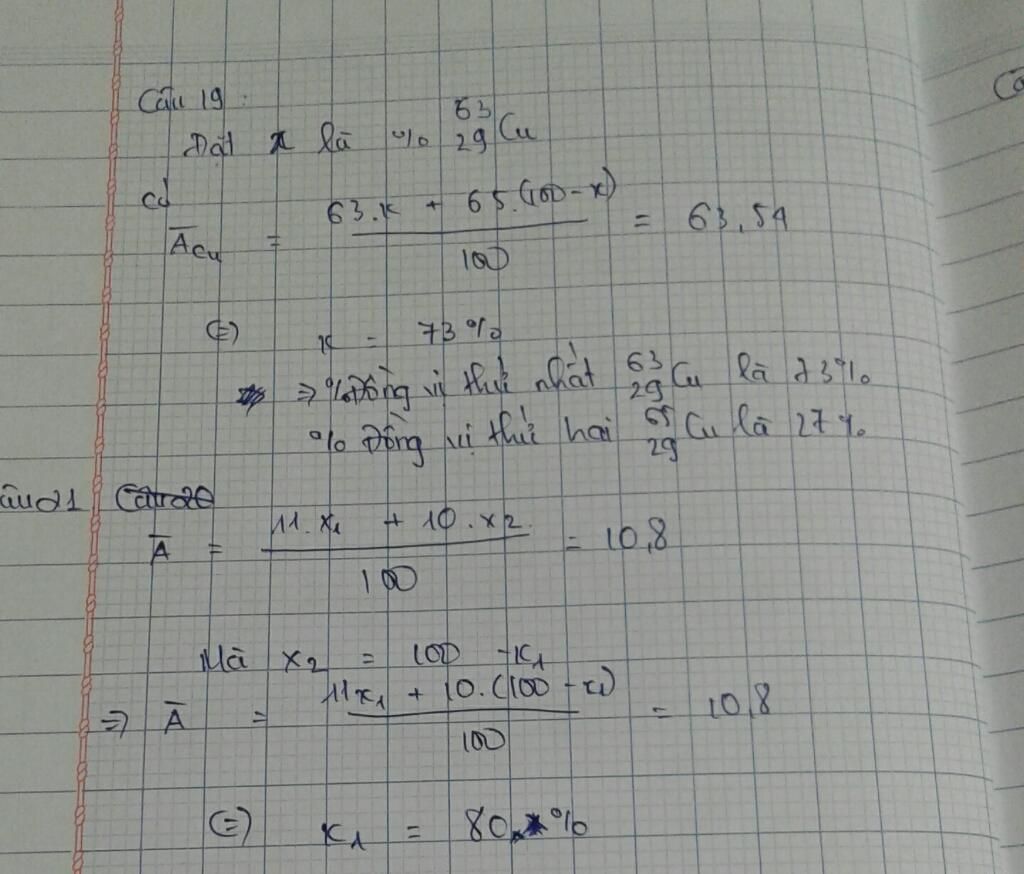 Câu 19:
Đặt x là % ⁶³₂₉Cu
có
A̅Cu = (63.x + 65.(100-x))/100 = 63,54
(=) x = 73%
=> % Đồng vị thứ nhất ⁶³₂₉Cu là 73%
% Đồng vị thứ hai ⁶⁵₂₉Cu là 27%
Câu 21 Câu 20
A̅ = (11.x₁ + 10.x₂)/100 = 10,8
Mà x₂ = 100 - x₁
=> A̅ = (11x₁ + 10.(100 - x₁))/100 = 10,8
(=) x₁ = 80%